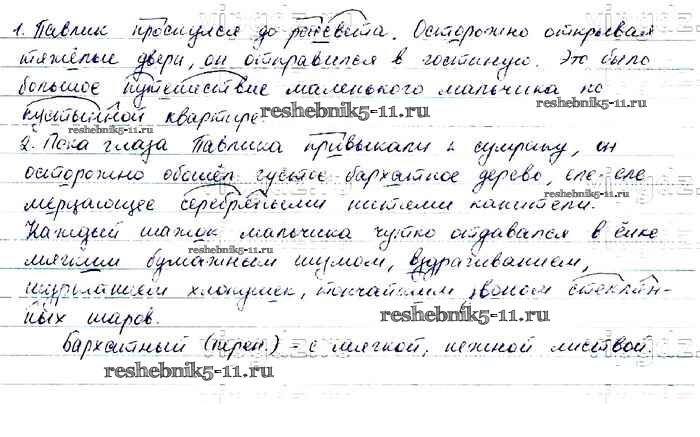 1. Павлик проснулся до рассвета. Осторожно открывая
тяжёлые двери, он отправился в гостиную. Это было
большое путешествие маленького мальчика по
пустынной квартире
reshebnik5-11.ru
reshebnik5-11.ru
2. Пока глаза Павлика привыкали к сумраку, он
осторожно обошёл густое бархатное дерево, еле-еле
reshebnik5-11.ru
мерцающее серебряными нитями канители.
Каждый шажок мальчика чутко отдавался в ёлке
reshebnik5-11.ru
мягким бумажным шумом, вздрагиванием,
хлопушек, тончайшим звоном стеклян-
ных шаров.
reshebnik5-11.ru
Бархатный (перен.) - с мягкой, нежной листвой.
reshebnik5-11.ru